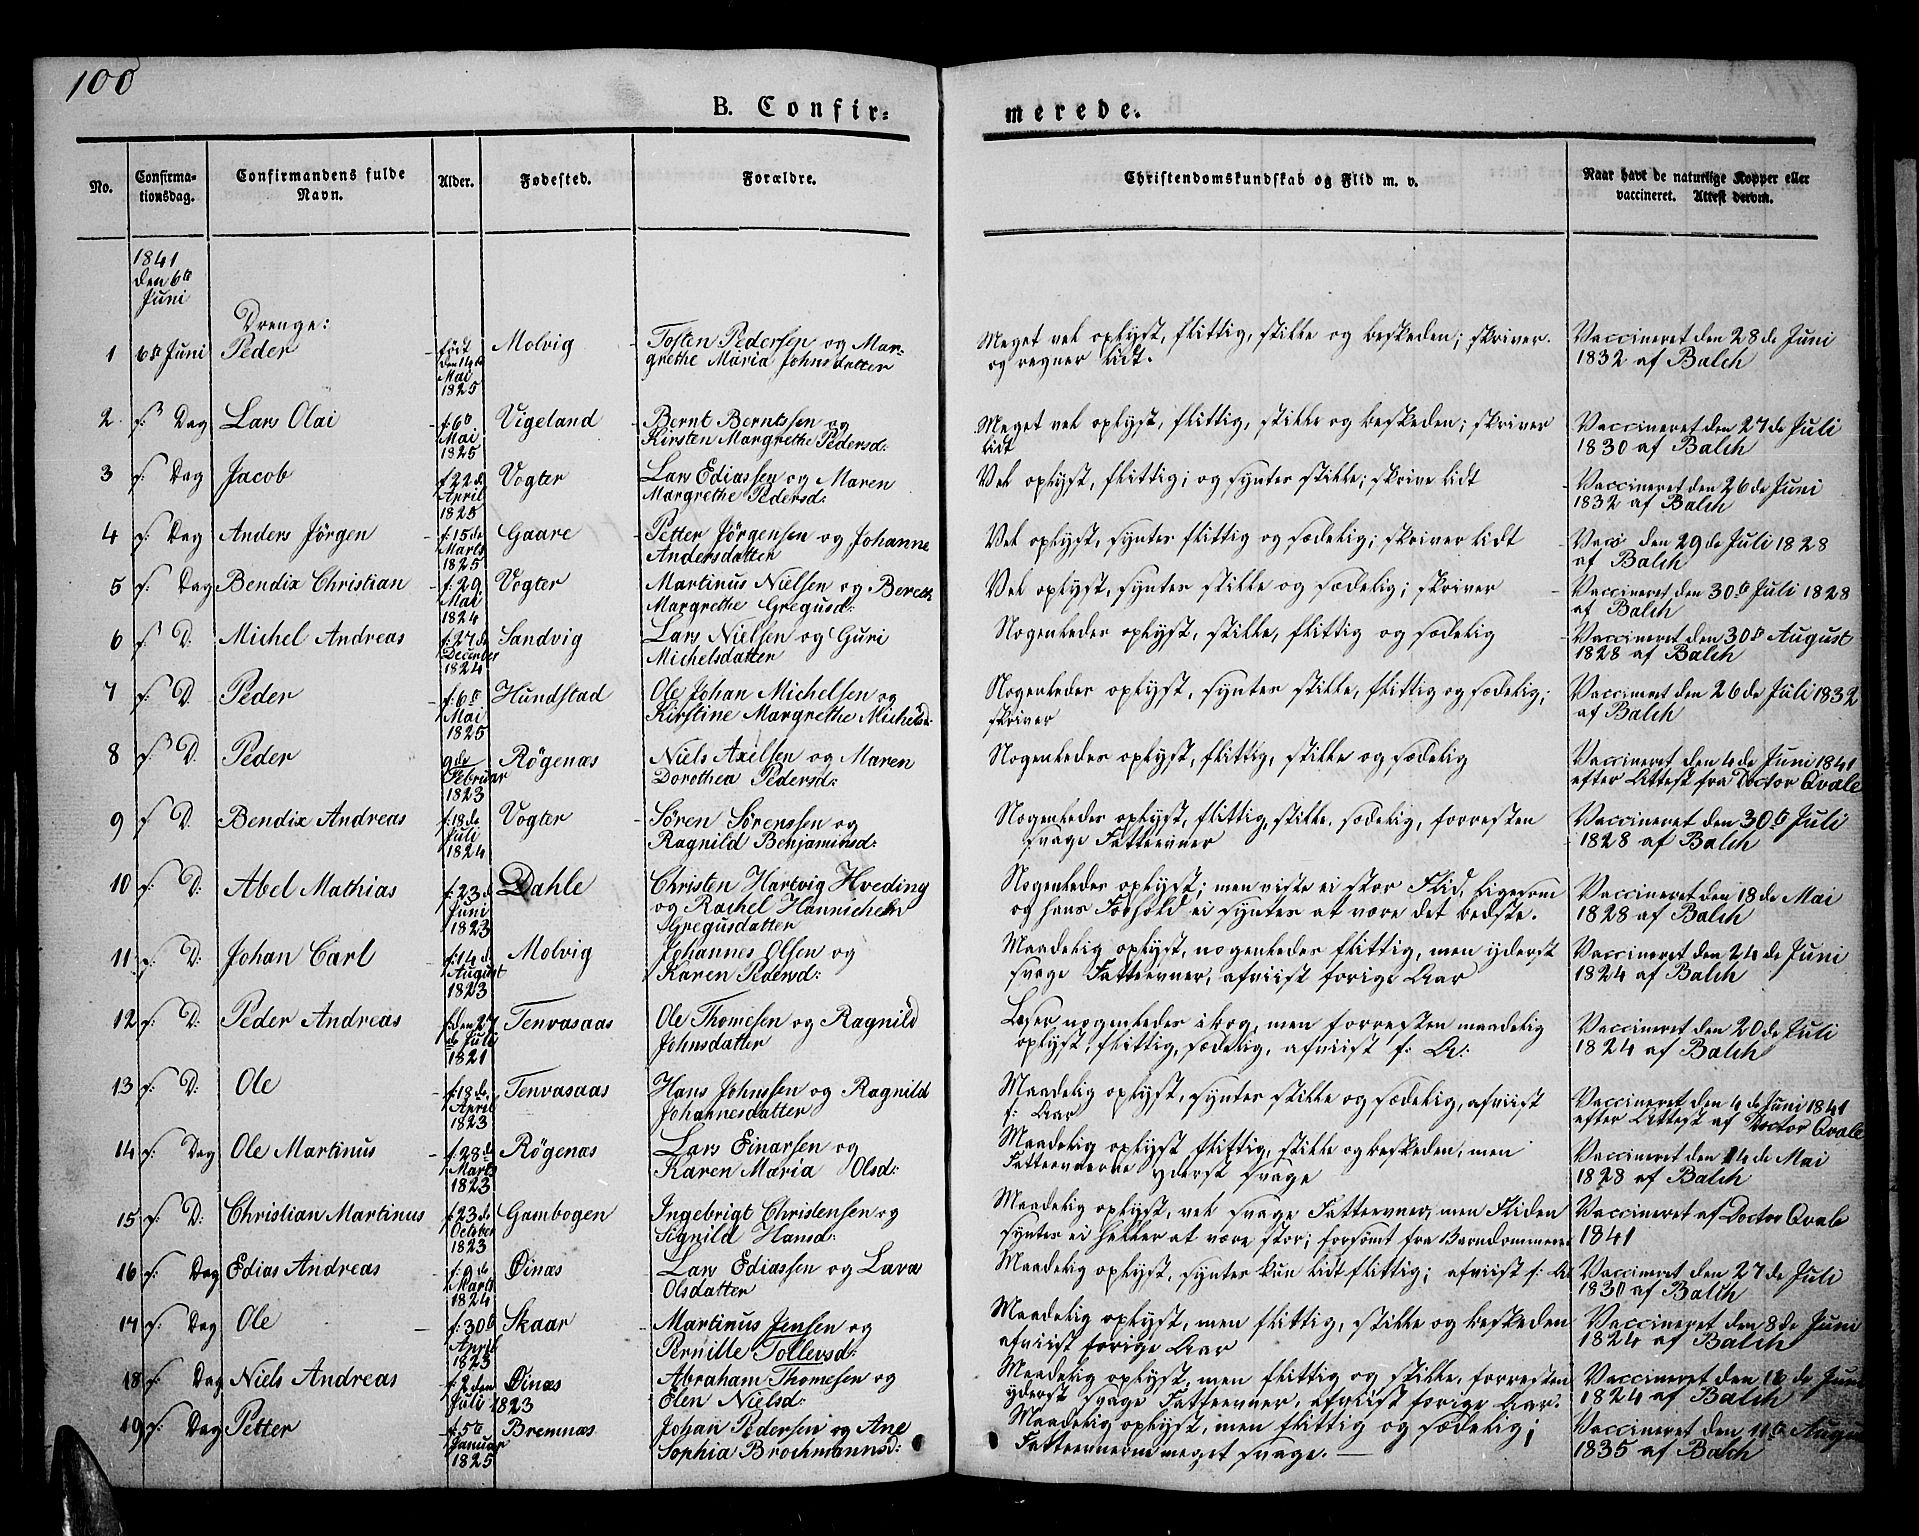 100
B. Confir=
merede.
No.
Confirma-
tionsdag.
Confirmandens fulde
Navn.
Alder.
Fødested.
Forældre.
Christendomskundskab og Flid m. v.
Naar havt de naturlige Kopper eller
vaccineret. Attest derom.
1841
den 6te
Juni
Drenge:
1 6te Juni Peder født den 14de Mai 1825 Molvig Tosten Pedersen og Mar-
grethe Maria Johnsdatter
Meget vel oplyst, flittig, stille og beskeden; skriver
og regner lidt.
Vaccineret den 28de Juni
1832 af Balch
2 s: Dag Lars Olai f. 6te Mai 1825 Vigeland Bernt Berntssen og
Kirsten Margrethe Pedersd:
Meget vel oplyst, flittig, stille og beskeden; skriver
lidt
Vaccineret den 27de Juli
1830 af Balch
3 s: Dag Jacob f. 22de April 1825 Vogter Lars Ediassen og Maren
Margrethe Pedersd:
Vel oplyst, flittig; og syntes stille; skrive lidt
Vaccineret den 26de Juni
1832 af Balch
4 s: Dag Anders Jörgen f. 15de Marts 1825 Gaare Petter Jörgensen og Johanne
Andersdatter
Vel oplyst, syntes flittig og sædelig; skriver lidt
den 29de Juli 1828
af Balch
5 s: Dag Bendix Christian f. 29 Mai 1824 Vogter Martinus Nielsen og Bereth
Margrethe Gregusd:
Vel oplyst, syntes stille og sædelig; skriver
Vaccineret den 30te Juli 1828
af Balch
6 s: D: Michel Andreas f. 27de December 1824 Sandvig Lars Nielsen og Guri
Michelsdatter
Nogenledes oplyst, stille, flittig og sædelig
Vaccineret den 30te August
1828 af Balch
7 s: D. Peder f. 6te Mai 1825 Hundstad Ole Johan Michelsen og
Kirstine Margrethe Michelsd:
Nogenledes oplyst, syntes stille, flittig og sædelig;
skriver
Vaccineret den 26de Juli 1832
af Balch
8 s: D. Peder 9de Februar 1823 Rögenæs Niels Axelsen og Maren
Dorothea Pedersd:
Nogenledes oplyst, flittig, stille og sædelig
Vaccineret den 4de Juni 1841
efter Attest fra Doctor Qvale
9 s: D. Bendix Andreas f. 18de Juli 1824 Vogter Sören Sörenssen og
Ragnild Benjaminsd:
Nogenledes oplyst, flittig, stille, sædelig, forresten
svage Fatteevner
Vaccineret den 30te Juli
1828 af Balch
10 s: D: Abel Mathias f. 23de Juni 1823 Dahle Christen Hartvig Hveding
og Rachel
Gregusdatter
Nogenledes oplyst; men viste ei stor Flid, ligesom
og hans Forhold ei syntes at være det bedste.
Vaccineret den 18de Mai
1828 af Balch
11 s: D: Johan Carl f. 14de August 1823 Molvig Johannes Olsen og
Karen Pedersd:
Maadelig oplyst, nogenledes flittig, men yderst
svage Fatteevner, afviist forige Aar
Vaccineret den 24de Juni
1824 af Balch
12 s: D: Peder Andreas f. den 27de Juli 1821 Tenvasaas Ole Thomesen og Ragnild
Johnsdatter
Læser nogenledes i bog, men forresten maadelig
oplyst, flittig, sædelig, afviist f: A:
Vaccineret den 20de Juli
1824 af Balch
13 s: D: Ole f. 18de April 1823 Tenvasaas Hans Johnssen og Ragnild
Johannesdatter
Maadelig oplyst, syntes stille og sædelig, afviist
f: Aar
Vaccineret den 4de Juni 1841
efter Attest af Doctor Qvale
14 s: Dag Ole Martinus f. 28de Marts 1823 Rögenæs Lars Einarsen og
Karen Maria Olsd:
Maadelig oplyst flittig, stille og beskeden, men
Fatteevnerne yderst svage
Vaccineret den 14de Mai
1828 af Balch
15 s: D: Christian Martinus f. 23de October 1823 Gambogen Ingebrigt Christensen og
Signild Hansd:
Maadelig oplyst, vel svage Fatteevner, men Fliden
syntes ei heller at være stor; forsömt fra Barndommen
Vaccineret af Doctor Qvale
1841
16 s: Dag Edias Andreas f. 9de Marts 1824 Öinæs Lars Ediassen og Lava
Olsdatter
Maadelig oplyst, syntes kun lidt flittig; afviist f: A
Vaccineret den 27de Juli
1830 af Balch
17 s: Dag Ole f: 30te April 1823 Skaar Martinus Jensen og
Pernille Tollevsd:
Maadelig oplyst, men flittig, stille og beskeden
afviist forige Aar
Vaccineret den 8de Juni
1824 af Balch
18 s: Dag Niels Andreas f. 2den Juli 1823 Öinæs Abraham Thomesen og
Elen Nielsd:
Maadelig oplyst, men flittig og stille, forresten
yderst svage Fatteevner, afviist forige Aar.
Vaccineret den 16de Juni
1824 af Balch
19 s: Dag Petter f. 5te Januar 1825 Bremnæs Johan Pedersen og Ane
Sophia Brochmannsd:
Maadelig oplyst, men flittig og sædelig;
Fatteevnerne meget svage.
Vaccineret den 11te Augu
1835 af Balch